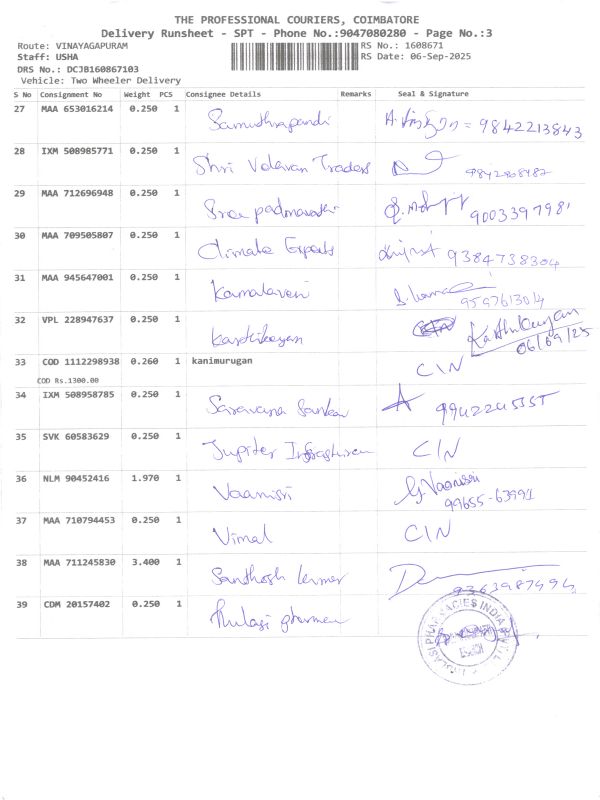 THE PROFESSIONAL COURIERS, COIMBATORE
Delivery Runsheet - SPT - Phone No.:9047080280 - Page No.:3
Route: VINAYAGAPURAM RS No.: 1608671
Staff: USHA RS Date: 06-Sep-2025
DRS No.: DCJB160867103
Vehicle: Two Wheeler Delivery
S No Consignment No Weight PCS Consignee Details Remarks Seal & Signature
27 MAA 653016214 0.250 1 Samuthrapandi = 9842213843
28 IXM 508985771 0.250 1 Shri Velavan Traders
29 MAA 712696948 0.250 1 Sree padmavathi
30 MAA 709505807 0.250 1 Climate Experts 9384738304
31 MAA 945647001 0.250 1 Kamalaveni 9597613014
32 VPL 228947637 0.250 1 Karthikeyan CIN Karthikeyan
06/09/25
33 COD 1112298938 0.260 1 kanimurugan CIN
COD Rs.1300.00
34 IXM 508958785 0.250 1 Saravana Sankar
35 SVK 60583629 0.250 1 Jupiter CIN
36 NLM 90452416 1.970 1 Vaanisri G. Vaanisri
99655-63991
37 MAA 710794453 0.250 1 Vimal CIN
38 MAA 711245830 3.400 1 Santhosh
39 CDM 20157402 0.250 1 Thulasi